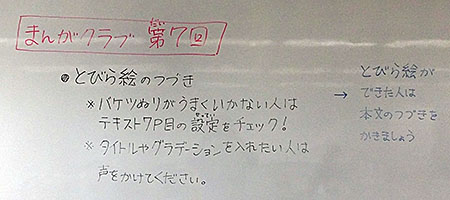 まんがクラブ 第7回
●とびら絵のつづき
※バケツぬりがうまくいかない人は
テキスト7P目の設定をチェック!
※タイトルやグラデーションを入れたい人は
声をかけてください。
→ とびら絵が
できた人は
本文のつづきを
かきましょう